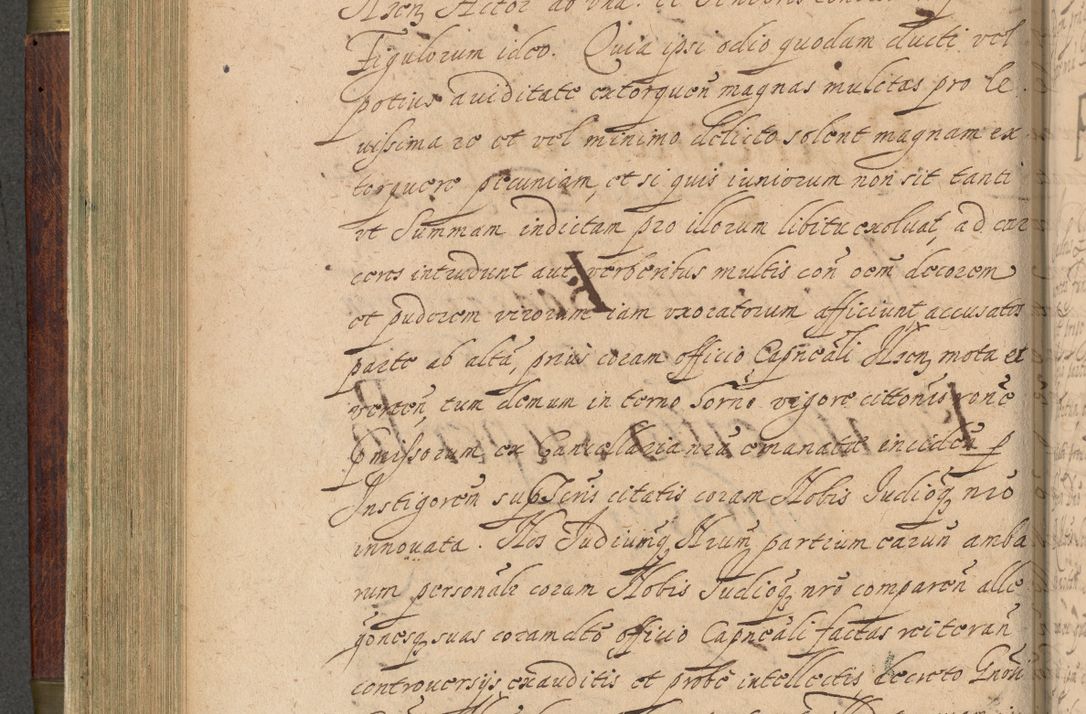 Figulorum ideo. Quia ipsi odio quodam ducti vel
potius auiditate extorquen̄ magnas mulctas pro le
uissima re et vel minimo delicto solent magnam ex
torquere pecuniam, et si quis iuniorum non sit tanti
vt Summam indictam pro illorum libitu exoluat, ad car
ceres intrudunt aut verberibus multis con̄ oem̄ decorem
et pudorem virorum iam vxoratorum afficiunt accusatos
parte ab altā, prius coram officio Capn̄eali mota et
verten̄, tum demum in terno vigore citton̄is ron̄e
p̄missorum ex Cancellaria nrā emanatae inciden̄ p
Instigoren̄ citatis coram Nobis Judicioq̢ nrō
innouata. Nos Judiumq̢ Nrum̄ partium earun̄ amba
rum personalr coram Nobis Judioq̢ nrō comparen̄ alle
goñesq̢ suas coram dc̄to officio Capn̄eali factas reiteran̄
controuersijs exauditis et probē intellectis, decreto